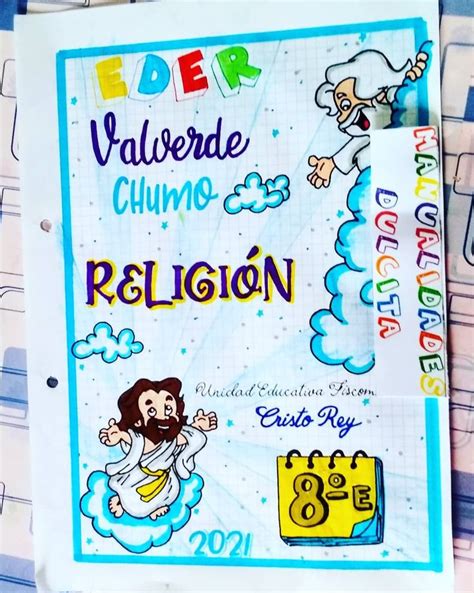 EDER
Valverde
CHUMO
MANUALIDADES
DULCITA
RELIGIÓN
Unidad Educativa Fiscom
Cristo Rey
8º E
2021